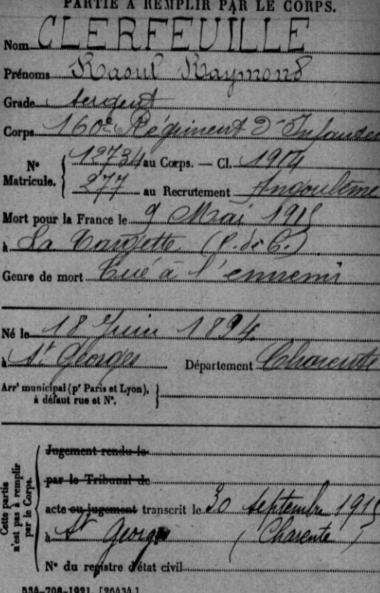 PARTIE À REMPLIR PAR LE CORPS.
Nom CLERFEUILLE
Prénoms Raoul Raymond
Grade Sergent
Corps 160e Régiment d'Infanterie
N° Matricule. { 12734 au Corps. — Cl. 1914
277 au Recrutement Angoulême
Mort pour la France le 9 Mai 1915
à La Targette (P. de C.)
Genre de mort Tué à l'ennemi
Né le 18 Juin 1894
à St Georges Département Charente
Arrt municipal (pr Paris et Lyon),
à défaut rue et N°.
Cette partie n'est pas à remplir par le Corps.
Jugement rendu le
par le Tribunal de
acte ou jugement transcrit le 30 septembre 1915
à St Georges (Charente)
N° du registre d'état civil
534-708-1921. [26434.]